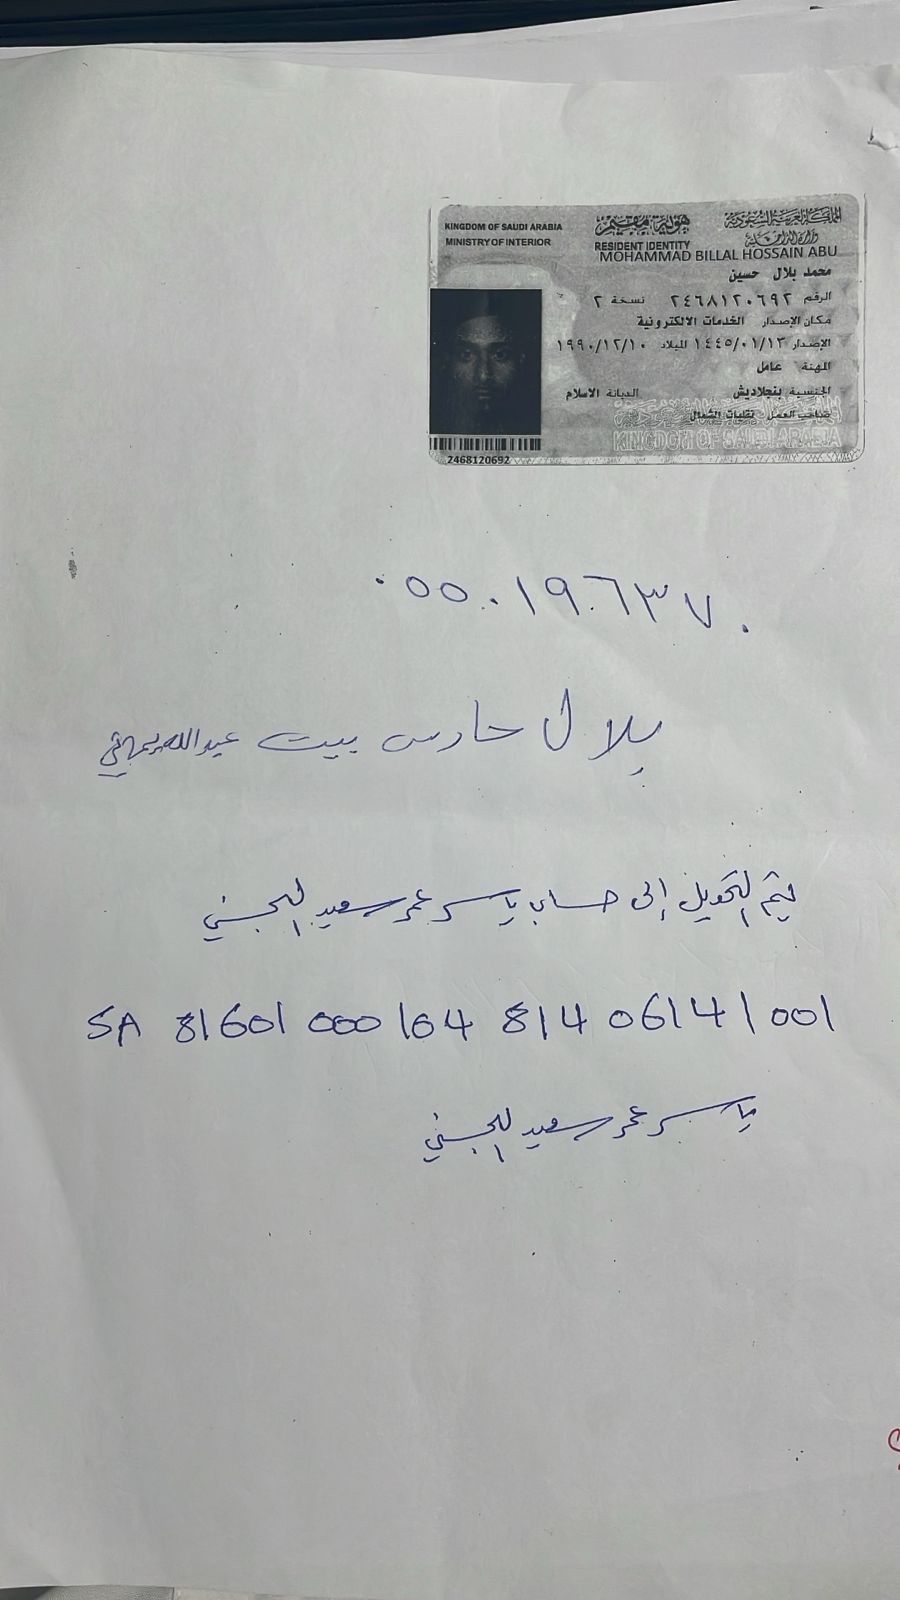 KINGDOM OF SAUDI ARABIA
MINISTRY OF INTERIOR
المملكة العربية السعودية
وزارة الداخلية
هوية مقيم
RESIDENT IDENTITY
MOHAMMAD BILLAL HOSSAIN ABU
محمد بلال حسين
الرقم ٢٤٦٨١٢٠٦٩٢ نسخة ٢
مكان الإصدار الخدمات الالكترونية
الإصدار ١٤٤٥/٠١/١٣ الميلاد ١٩٩٠/١٢/١٠
المهنة عامل
الجنسية بنجلاديش الديانة الاسلام
صاحب العمل نقليات الشمال
KINGDOM OF SAUDI ARABIA
2468120692
٠٥٥٠١٩٦٣٧٠
بلال حارس بيت عبدالله
يتم التحويل إلى حساب ياسر عمر سعيد
SA 81601 000 104 814 06141 001
ياسر عمر سعيد